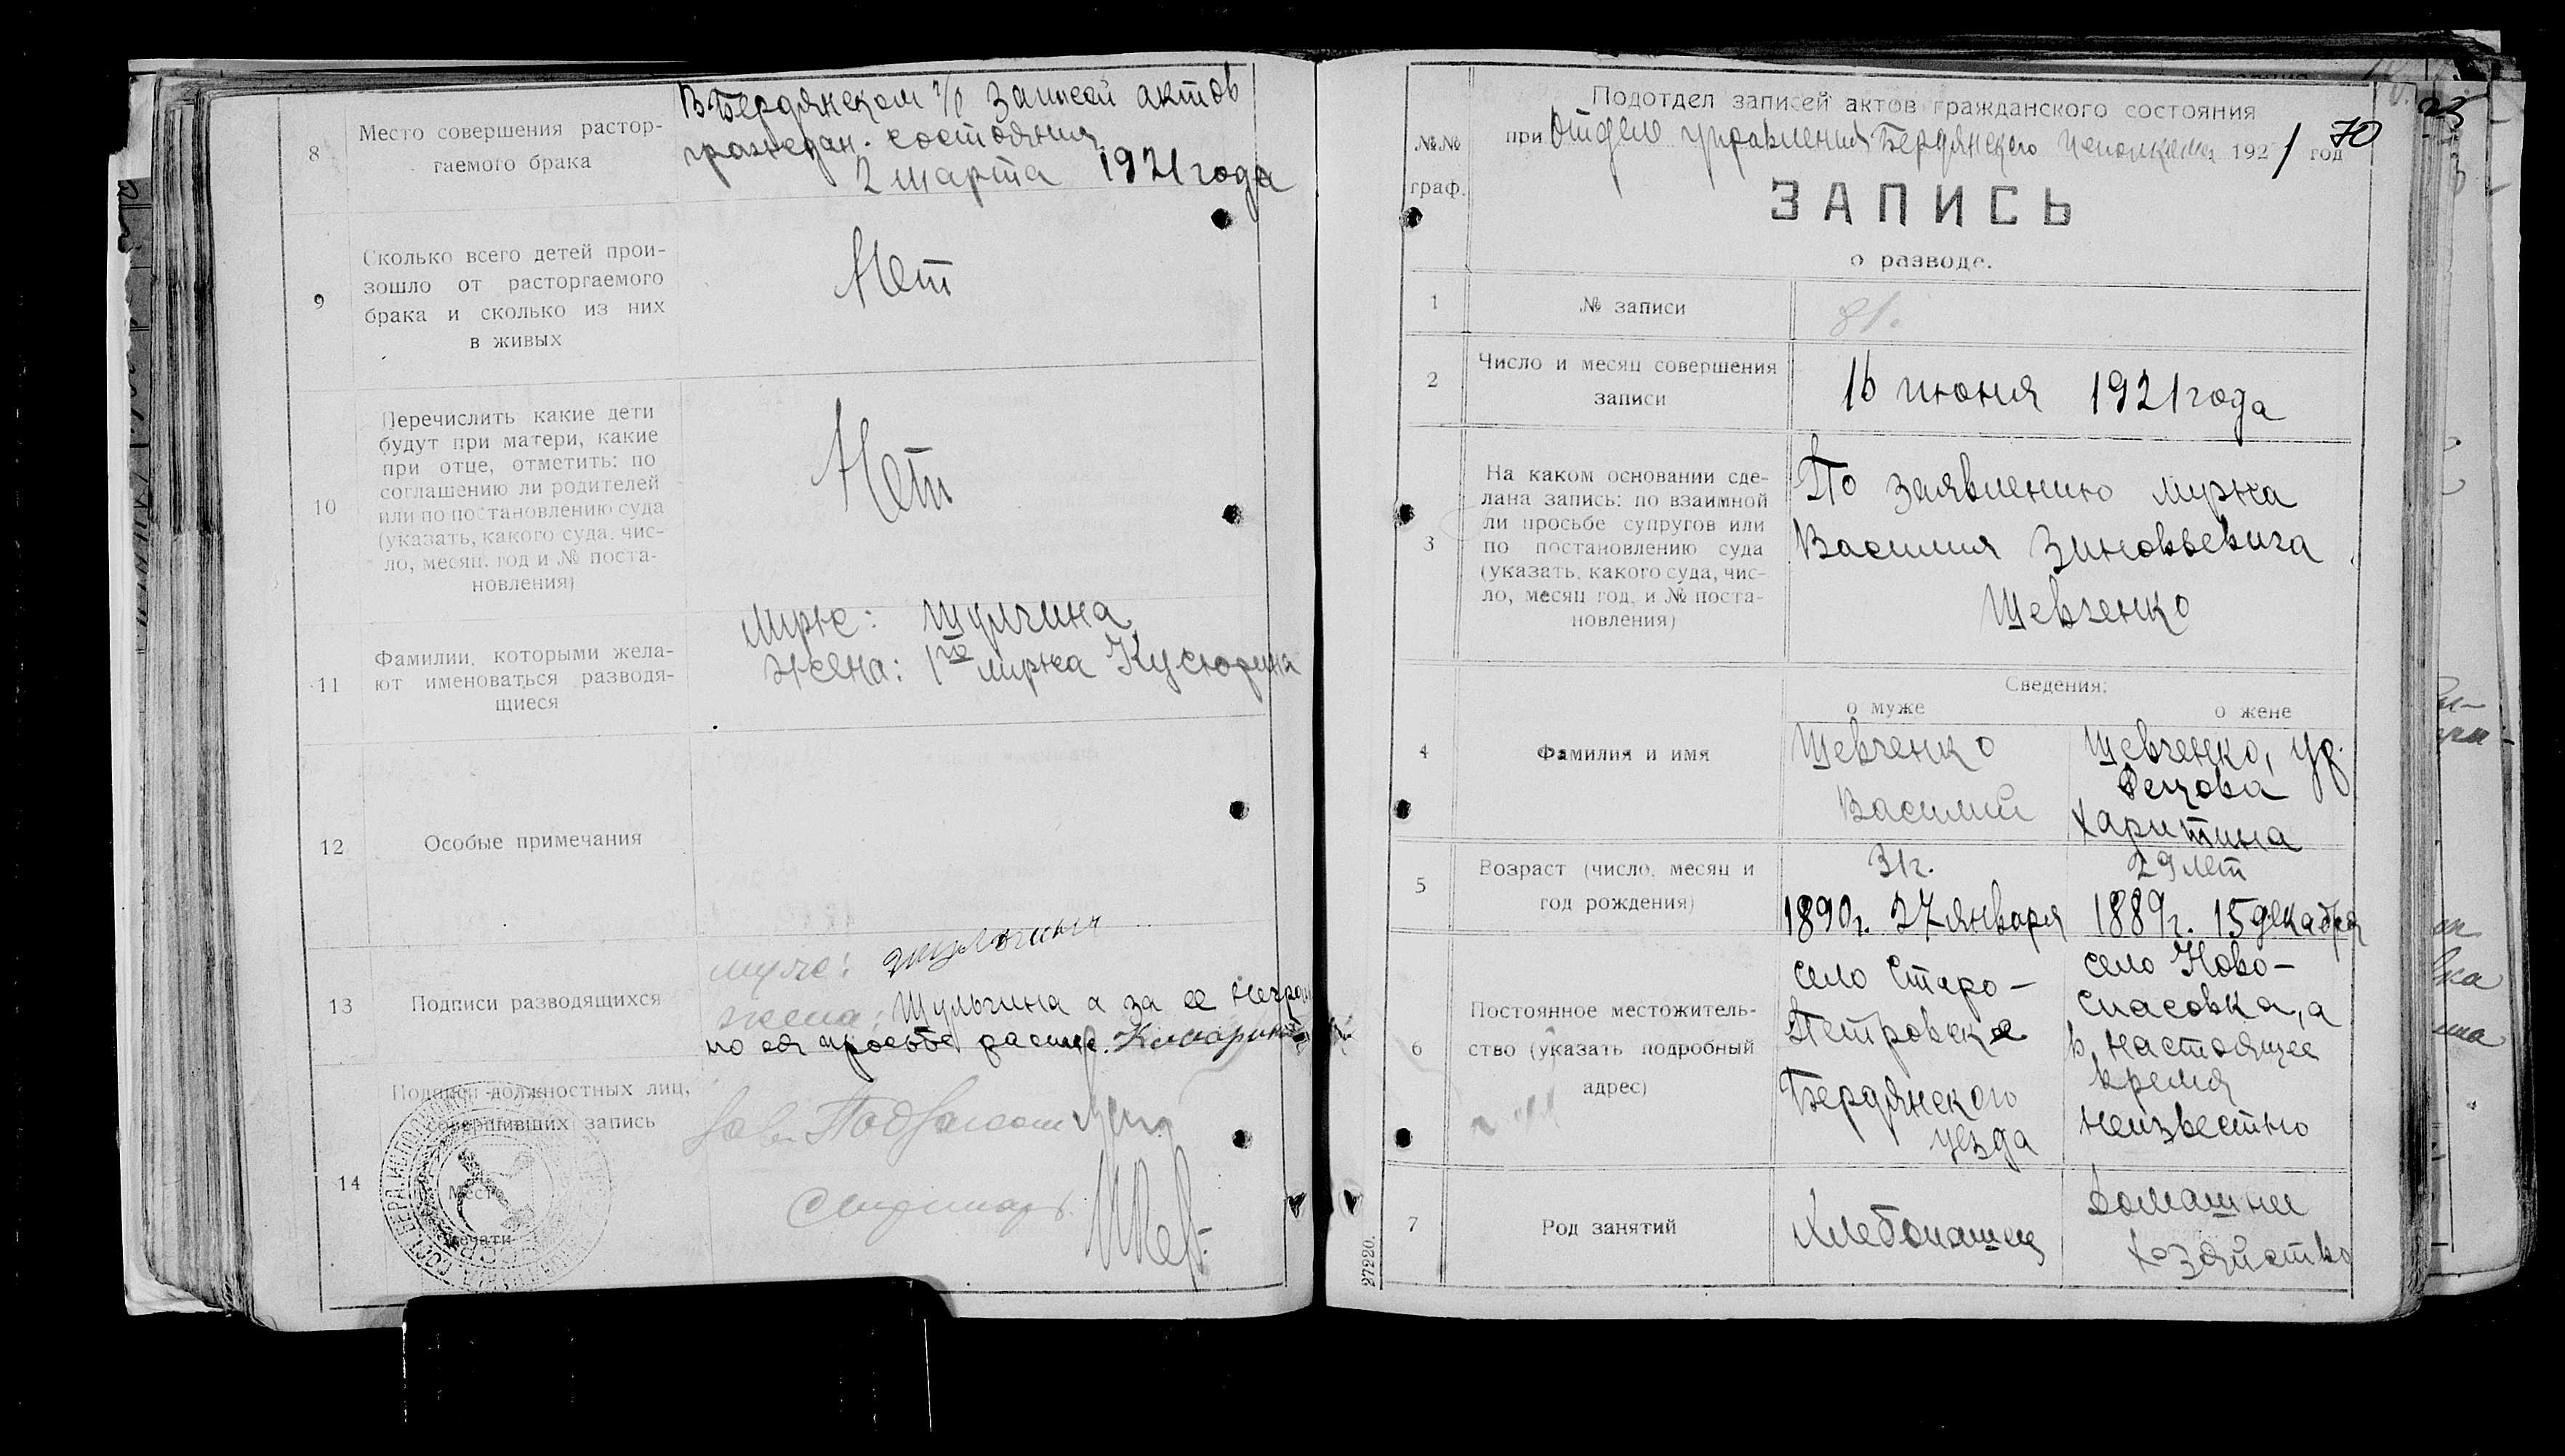 8
Место совершения растор-
гаемого брака
В Бердянском п/о записей актов
граждан. состояния
2 марта 1921 года
9
Сколько всего детей прои-
зошло от расторгаемого
брака и сколько из них
в живых
Нет
10
Перечислить какие дети
будут при матери, какие
при отце, отметить: по
соглашению ли родителей
или по постановлению суда
(указать, какого суда, чис-
ло, месяц, год и № поста-
новления)
Нет
11
Фамилии, которыми жела-
ют именоваться разводя-
щиеся
Муж: Шулгина
Жена: 1го мужа
12
Особые примечания
13
Подписи разводящихся
муж:
жена: Шульгина а за ее неграм
по ея просьбе
14
Подписи должностных лиц,
совершивших запись
Место
печати
Зав.
Секретарь
№№
граф.
Подотдел записей актов гражданского состояния
при Отделе управления Бердянского исполкома 1921 год
70
25
ЗАПИСЬ
о разводе.
1
№ записи
81.
2
Число и месяц совершения
записи
16 июня 1921 года
3
На каком основании сде-
лана запись: по взаимной
ли просьбе супругов или
по постановлению суда
(указать, какого суда, чис-
ло, месяц год, и № поста-
новления)
По заявлению мужа
Василия Зиновьевича
Шевченко
Сведения:
о муже
о жене
4
Фамилия и имя
Шевченко
Василий
Шевченко, ур.
Харитина
5
Возраст (число, месяц и
год рождения)
31 г.
1890 г. 27 января
29 лет
1889 г. 15 декабря
6
Постоянное местожитель-
ство (указать подробный
адрес)
село Старо-
Петровка
Бердянского
уезда
село Ново-
спасовка, а
в настоящее
время
неизвестно
7
Род занятий
Хлебопашец
домашнее
хозяйство
27220.